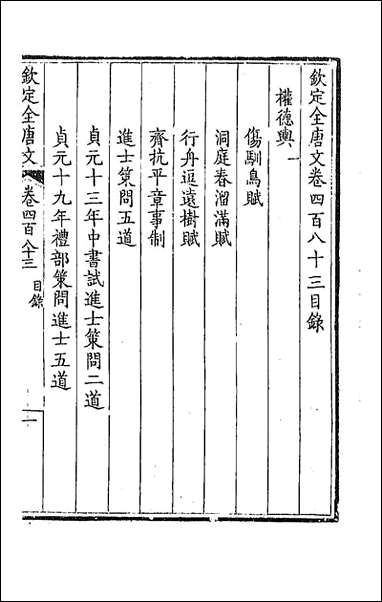 欽定全唐文卷四百八十三目錄
權德輿一
傷馴鳥賦
洞庭春溜滿賦
行舟逗遠樹賦
齊抗平章事制
進士策問五道
貞元十三年中書試進士策問二道
貞元十九年禮部策問進士五道
欽定全唐文 卷四百八十三 目錄 一